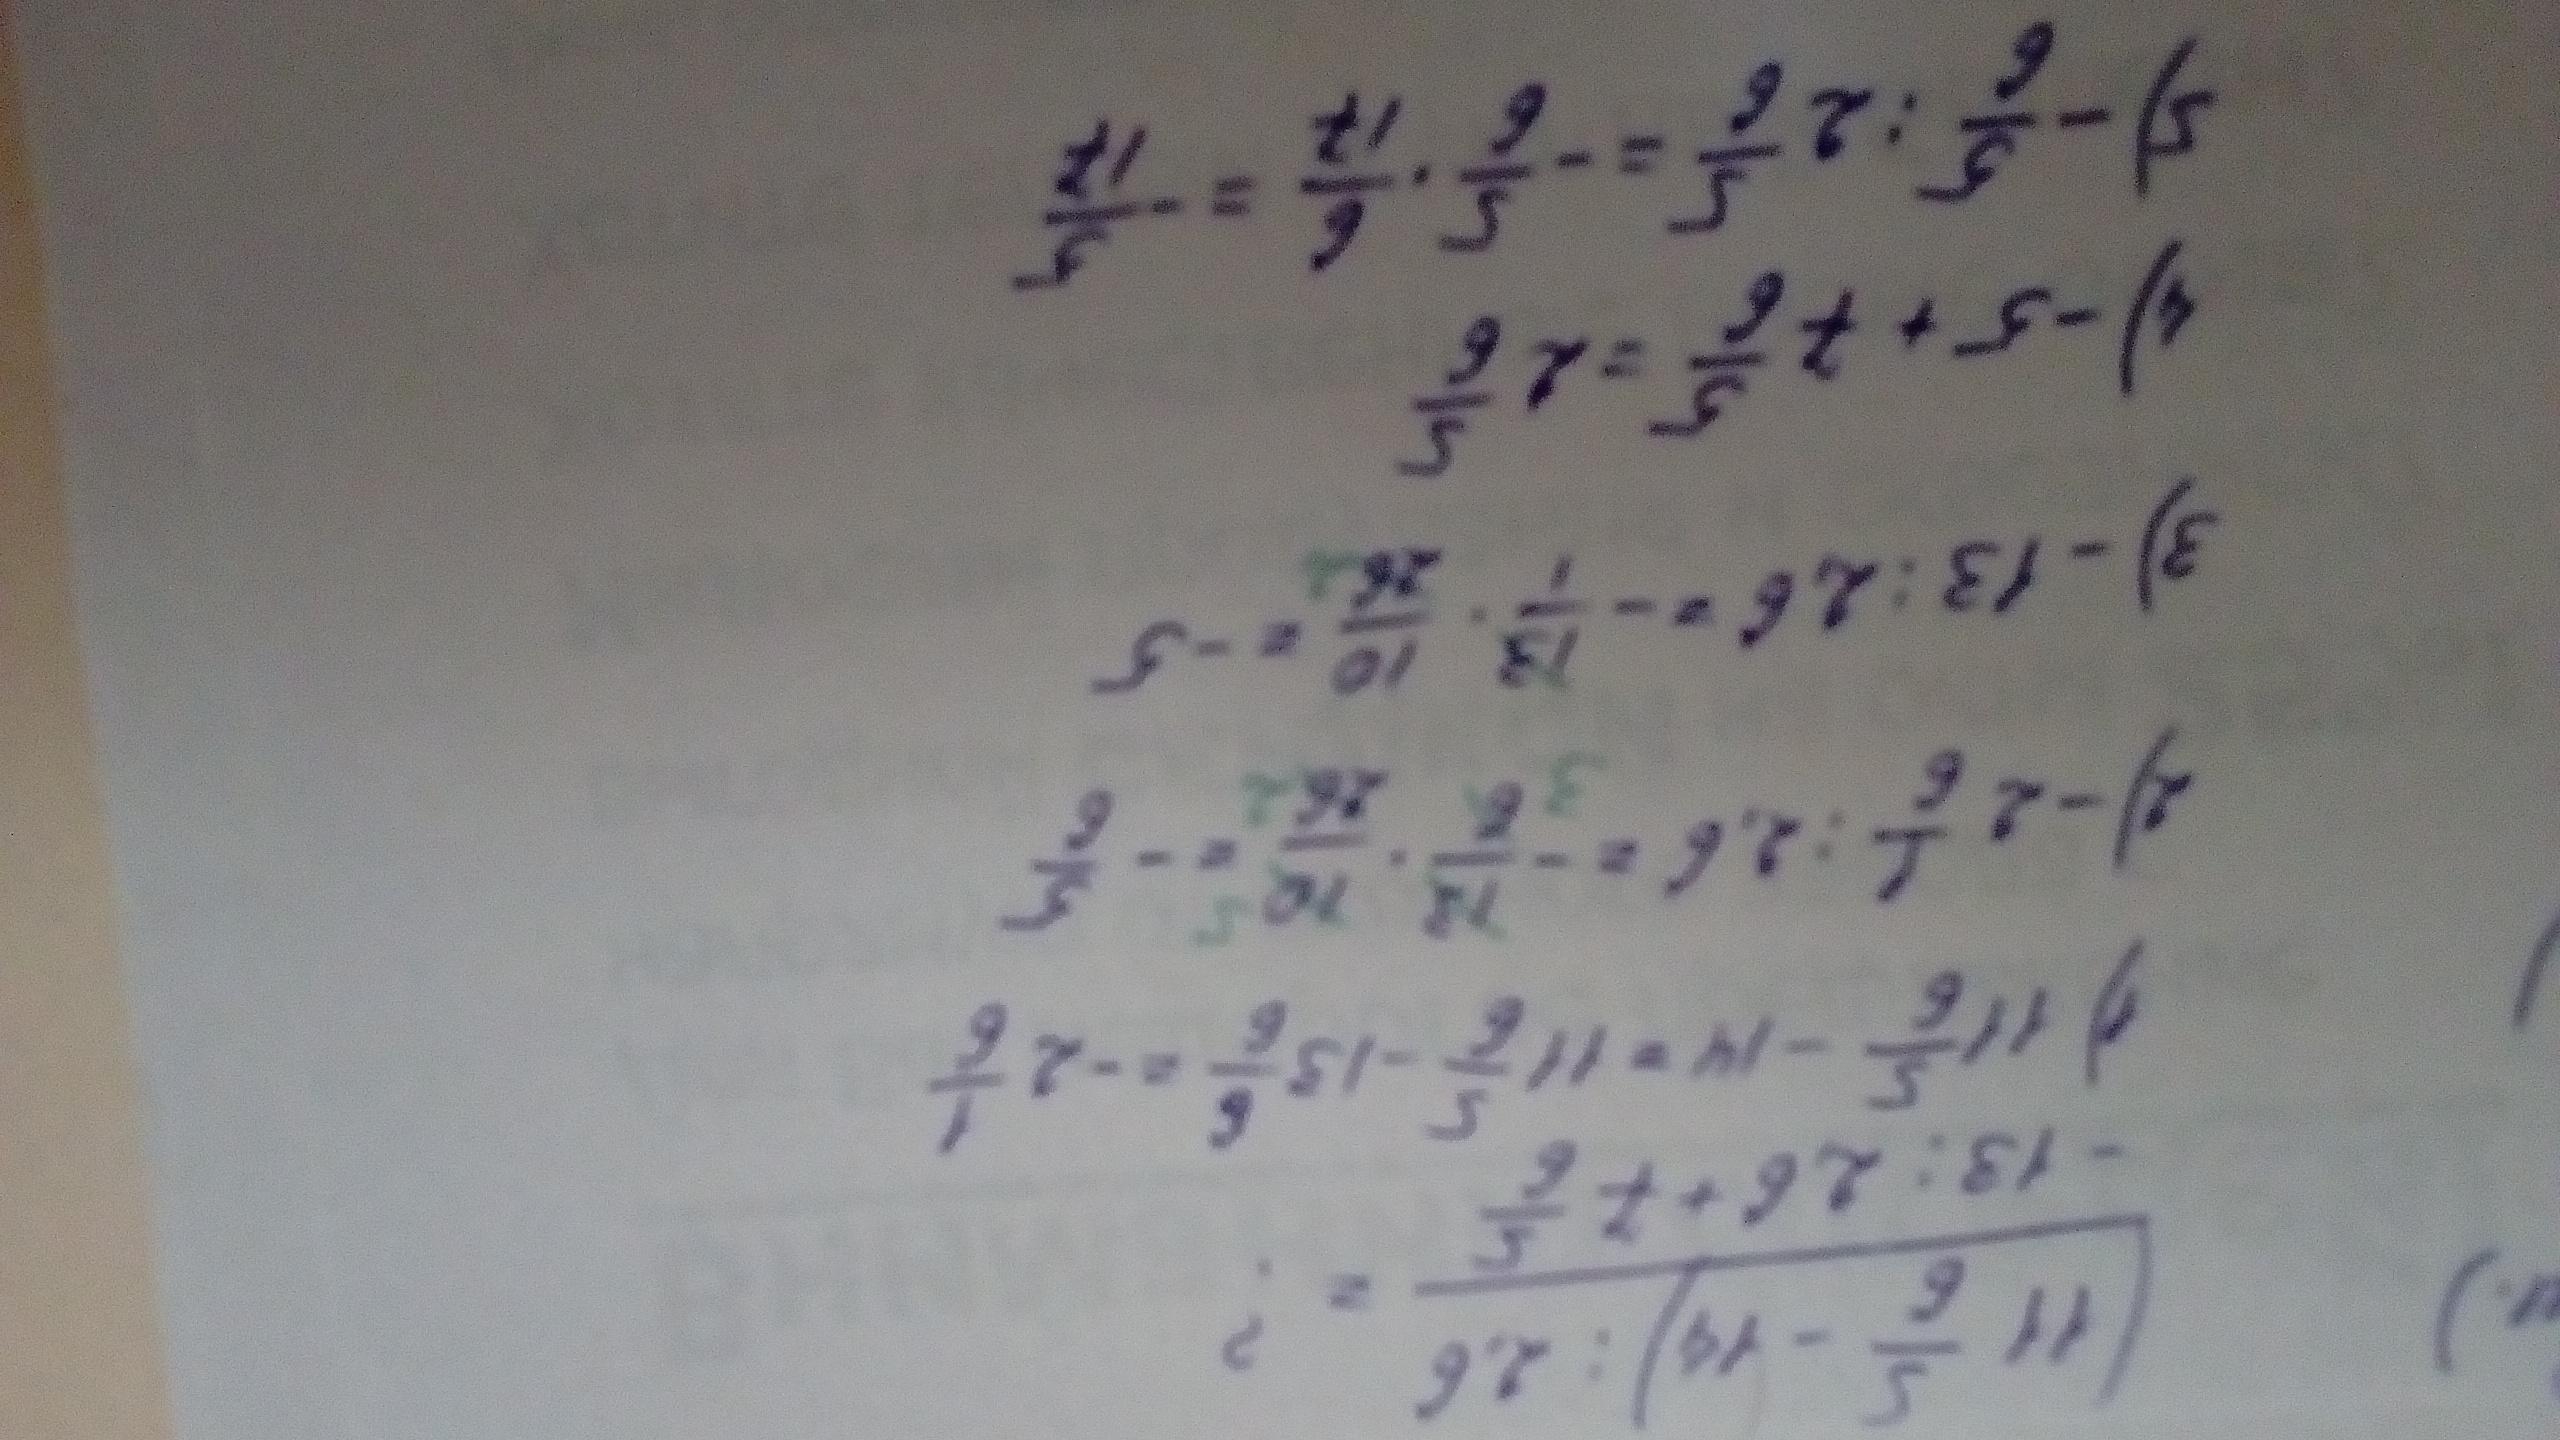 (11 5/6 - 14) : 2.6 / -13 : 2.6 + 7 5/6 = ?
1) 11 5/6 - 14 = 11 5/6 - 13 6/6 = -2 1/6
2) -2 1/6 : 2.6 = - 13/6 3 · 10 5/26 2 = - 5/6
3) -13 : 2.6 = - 13/1 · 10/26 2 = -5
4) -5 + 7 5/6 = 2 5/6
5) - 5/6 : 2 5/6 = - 5/6 · 6/17 = - 5/17